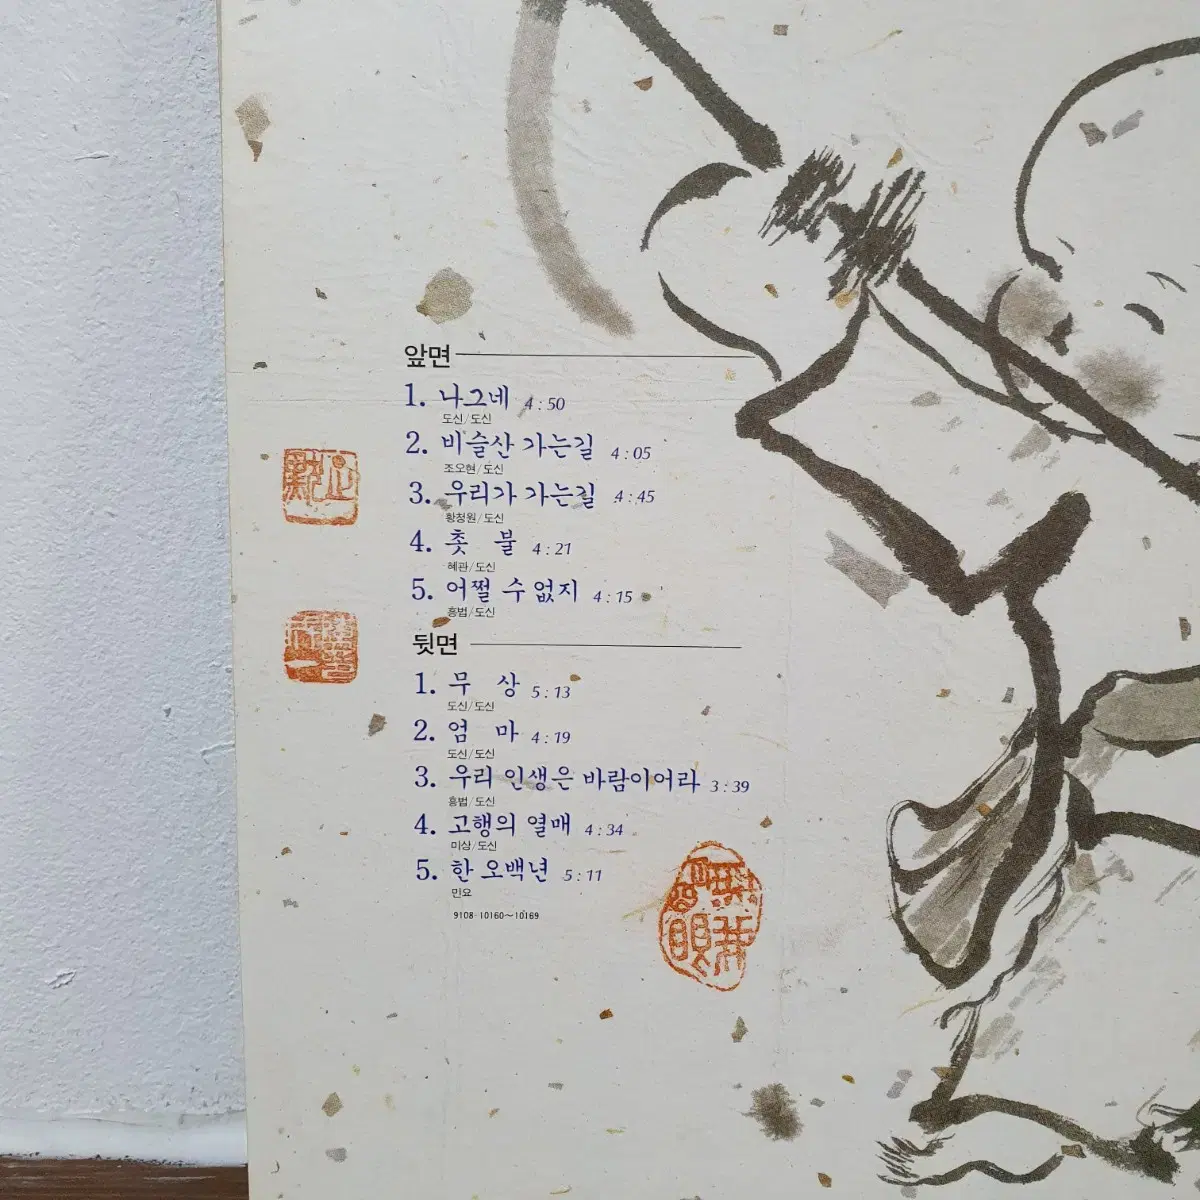 앞면
1. 나그네 4:50
도신/도신
2. 비슬산 가는길 4:05
조오현/도신
3. 우리가 가는길 4:45
황청원/도신
4. 촛 불 4:21
혜관/도신
5. 어쩔 수 없지 4:15
흥법/도신
뒷면
1. 무 상 5:13
도신/도신
2. 엄 마 4:19
도신/도신
3. 우리 인생은 바람이어라 3:39
흥법/도신
4. 고행의 열매 4:34
미상/도신
5. 한 오백년 5:11
민요
9108-10160~10169